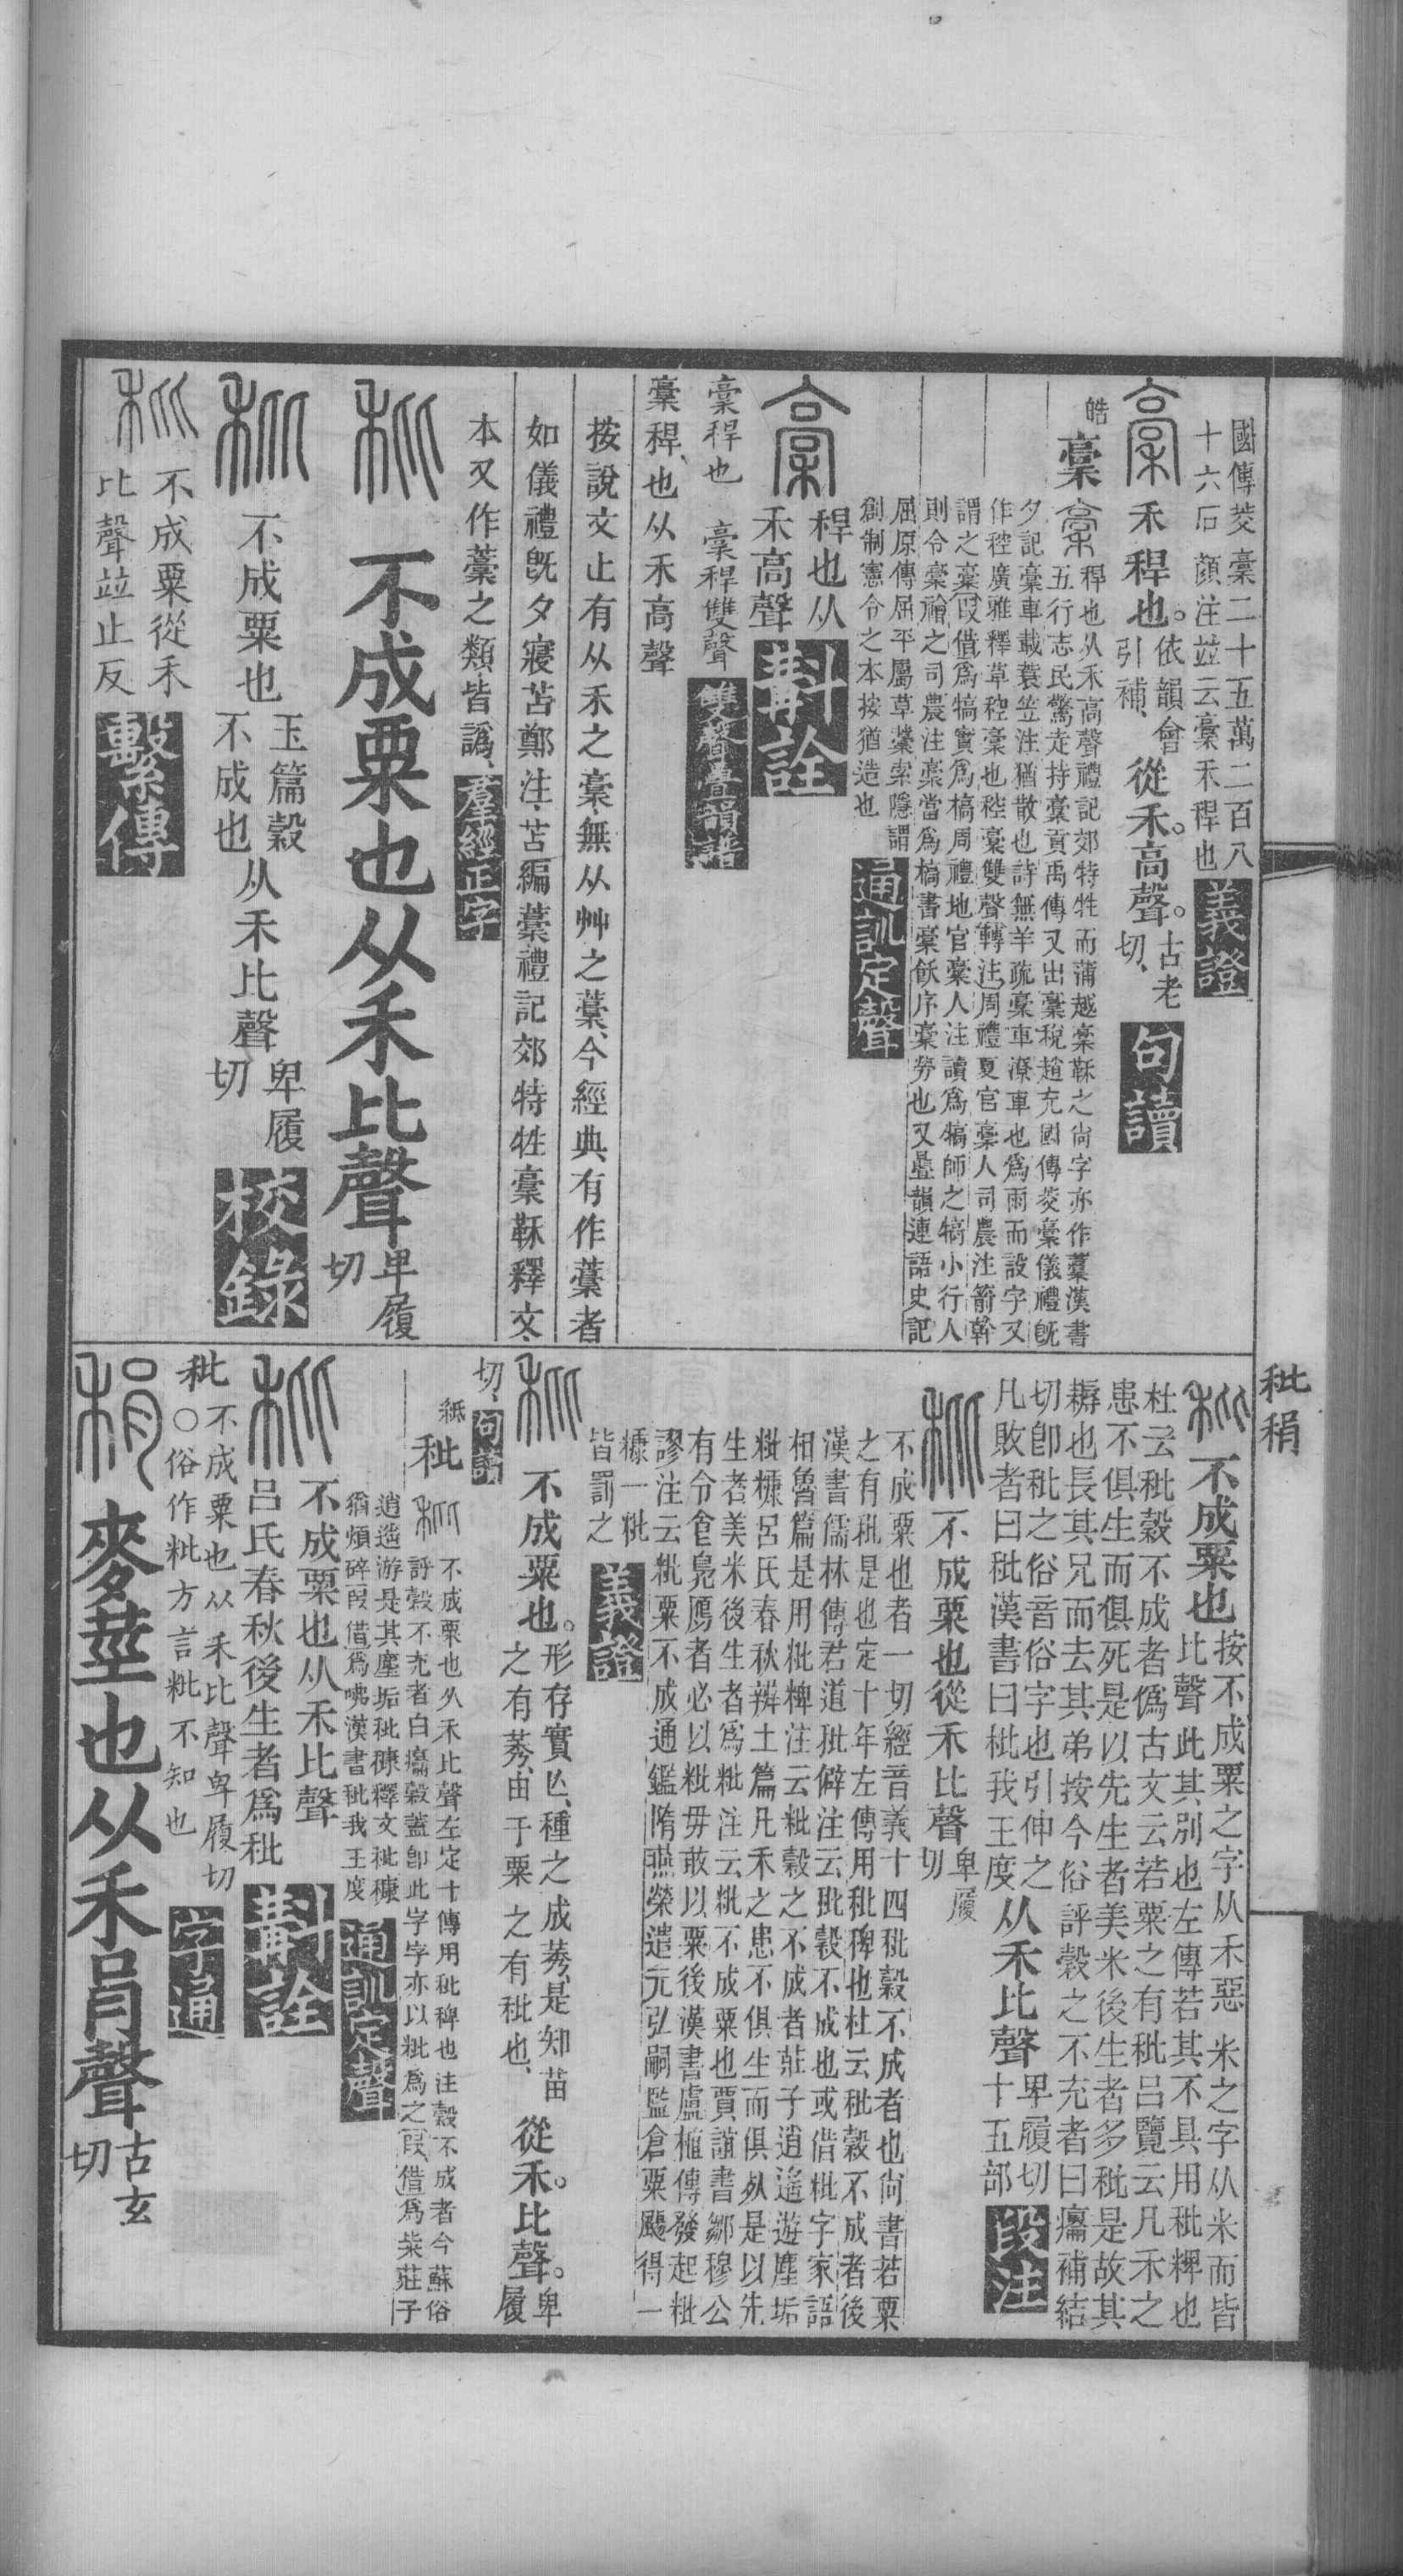 國傳茭稾二十五萬二百八
十六石顏注竝云稾禾稈也
義證
禾稈也。
依韻會
引補、
從禾。高聲。
古老
切、
句讀
皓
稾
稈也从禾高聲禮記郊特牲而蒲越稾鞂之尙字亦作藳漢書
五行志民驚走持稾貢禹傳又出稾稅趙充國傳茭稾儀禮旣
夕記稾車載蓑笠注猶散也詩無羊疏稾車潦車也爲雨而設字又
作䅣廣雅釋草䅣稾也䅣稾雙聲轉注周禮夏官稾人司農注箭幹
謂之稾叚借爲犒實爲槁周禮地官稾人注讀爲犒師之犒小行人
則令稾禬之司農注稾當爲槁書稾飫序稾勞也又疊韻連語史記
屈原傳屈平屬草稾索隱謂
創制憲令之本按猶造也
通訓定聲
稈也从
禾高聲
斠詮
稾稈也　稾稈雙聲
雙聲疊韻譜
稾稈、也从禾高聲
按說文止有从禾之稾、無从艸之藳、今經典有作藳者
如儀禮旣夕寢苫鄭注、苫編藳禮記郊特牲稾鞂釋文、
本又作藳之類、皆譌、
羣經正字
不成粟也从禾比聲
卑履
切
不成粟也
玉篇穀
不成也
从禾比聲
卑履
切
校錄
不成粟從禾
比聲竝止反
繫傳
秕稍
不成粟也
按不成粟之字从禾惡米之字从米而皆
比聲此其別也左傳若其不具用秕粺也
杜云秕穀不成者僞古文云若粟之有秕呂覽云凡禾之
患不俱生而俱死是以先生者美米後生者多秕是故其
耨也長其兄而去其弟按今俗評穀之不充者曰癟補結
切卽秕之俗音俗字也引伸之
凡敗者曰秕漢書曰秕我王度
从禾比聲
卑履切
十五部
段注
不成粟也從禾比聲
卑履
切
不成粟也者一切經音義十四秕穀不成者也尙書若粟
之有秕是也定十年左傳用秕稗也杜云秕穀不成者後
漢書儒林傳君道秕僻注云秕穀不成也或借粃字家語
相魯篇是用粃粺注云粃穀之不成者莊子逍遙遊塵垢
粃糠呂氏春秋辨土篇凡禾之患不俱生而俱死是以先
生者美米後生者爲粃注云粃不成粟也賈誼書鄒穆公
有令食鳧鴈者必以粃毋敢以粟後漢書盧植傳發起粃
謬注云粃粟不成通鑑隋燕榮遣元弘嗣監倉粟颺得一
糠一粃
皆罰之
義證
不成粟也。
形存實亾、種之成莠、是知苗
之有莠、由于粟之有秕也、
從禾。比聲。
卑履
切、
句讀
紙
秕
不成粟也从禾比聲左定十傳用秕稗也注穀不成者今蘇俗
評穀不充者白癟穀蓋卽此字字亦以粃爲之叚借爲柴莊子
逍遙游是其塵垢秕穅釋文秕穅
猶煩碎叚借爲嘒漢書秕我王度
通訓定聲
不成粟也从禾比聲
呂氏春秋後生者爲秕
斠詮
秕
不成粟也从禾比聲卑履切
〇俗作粃方言粃不知也
字通
麥莖也从禾肙聲
古玄
切